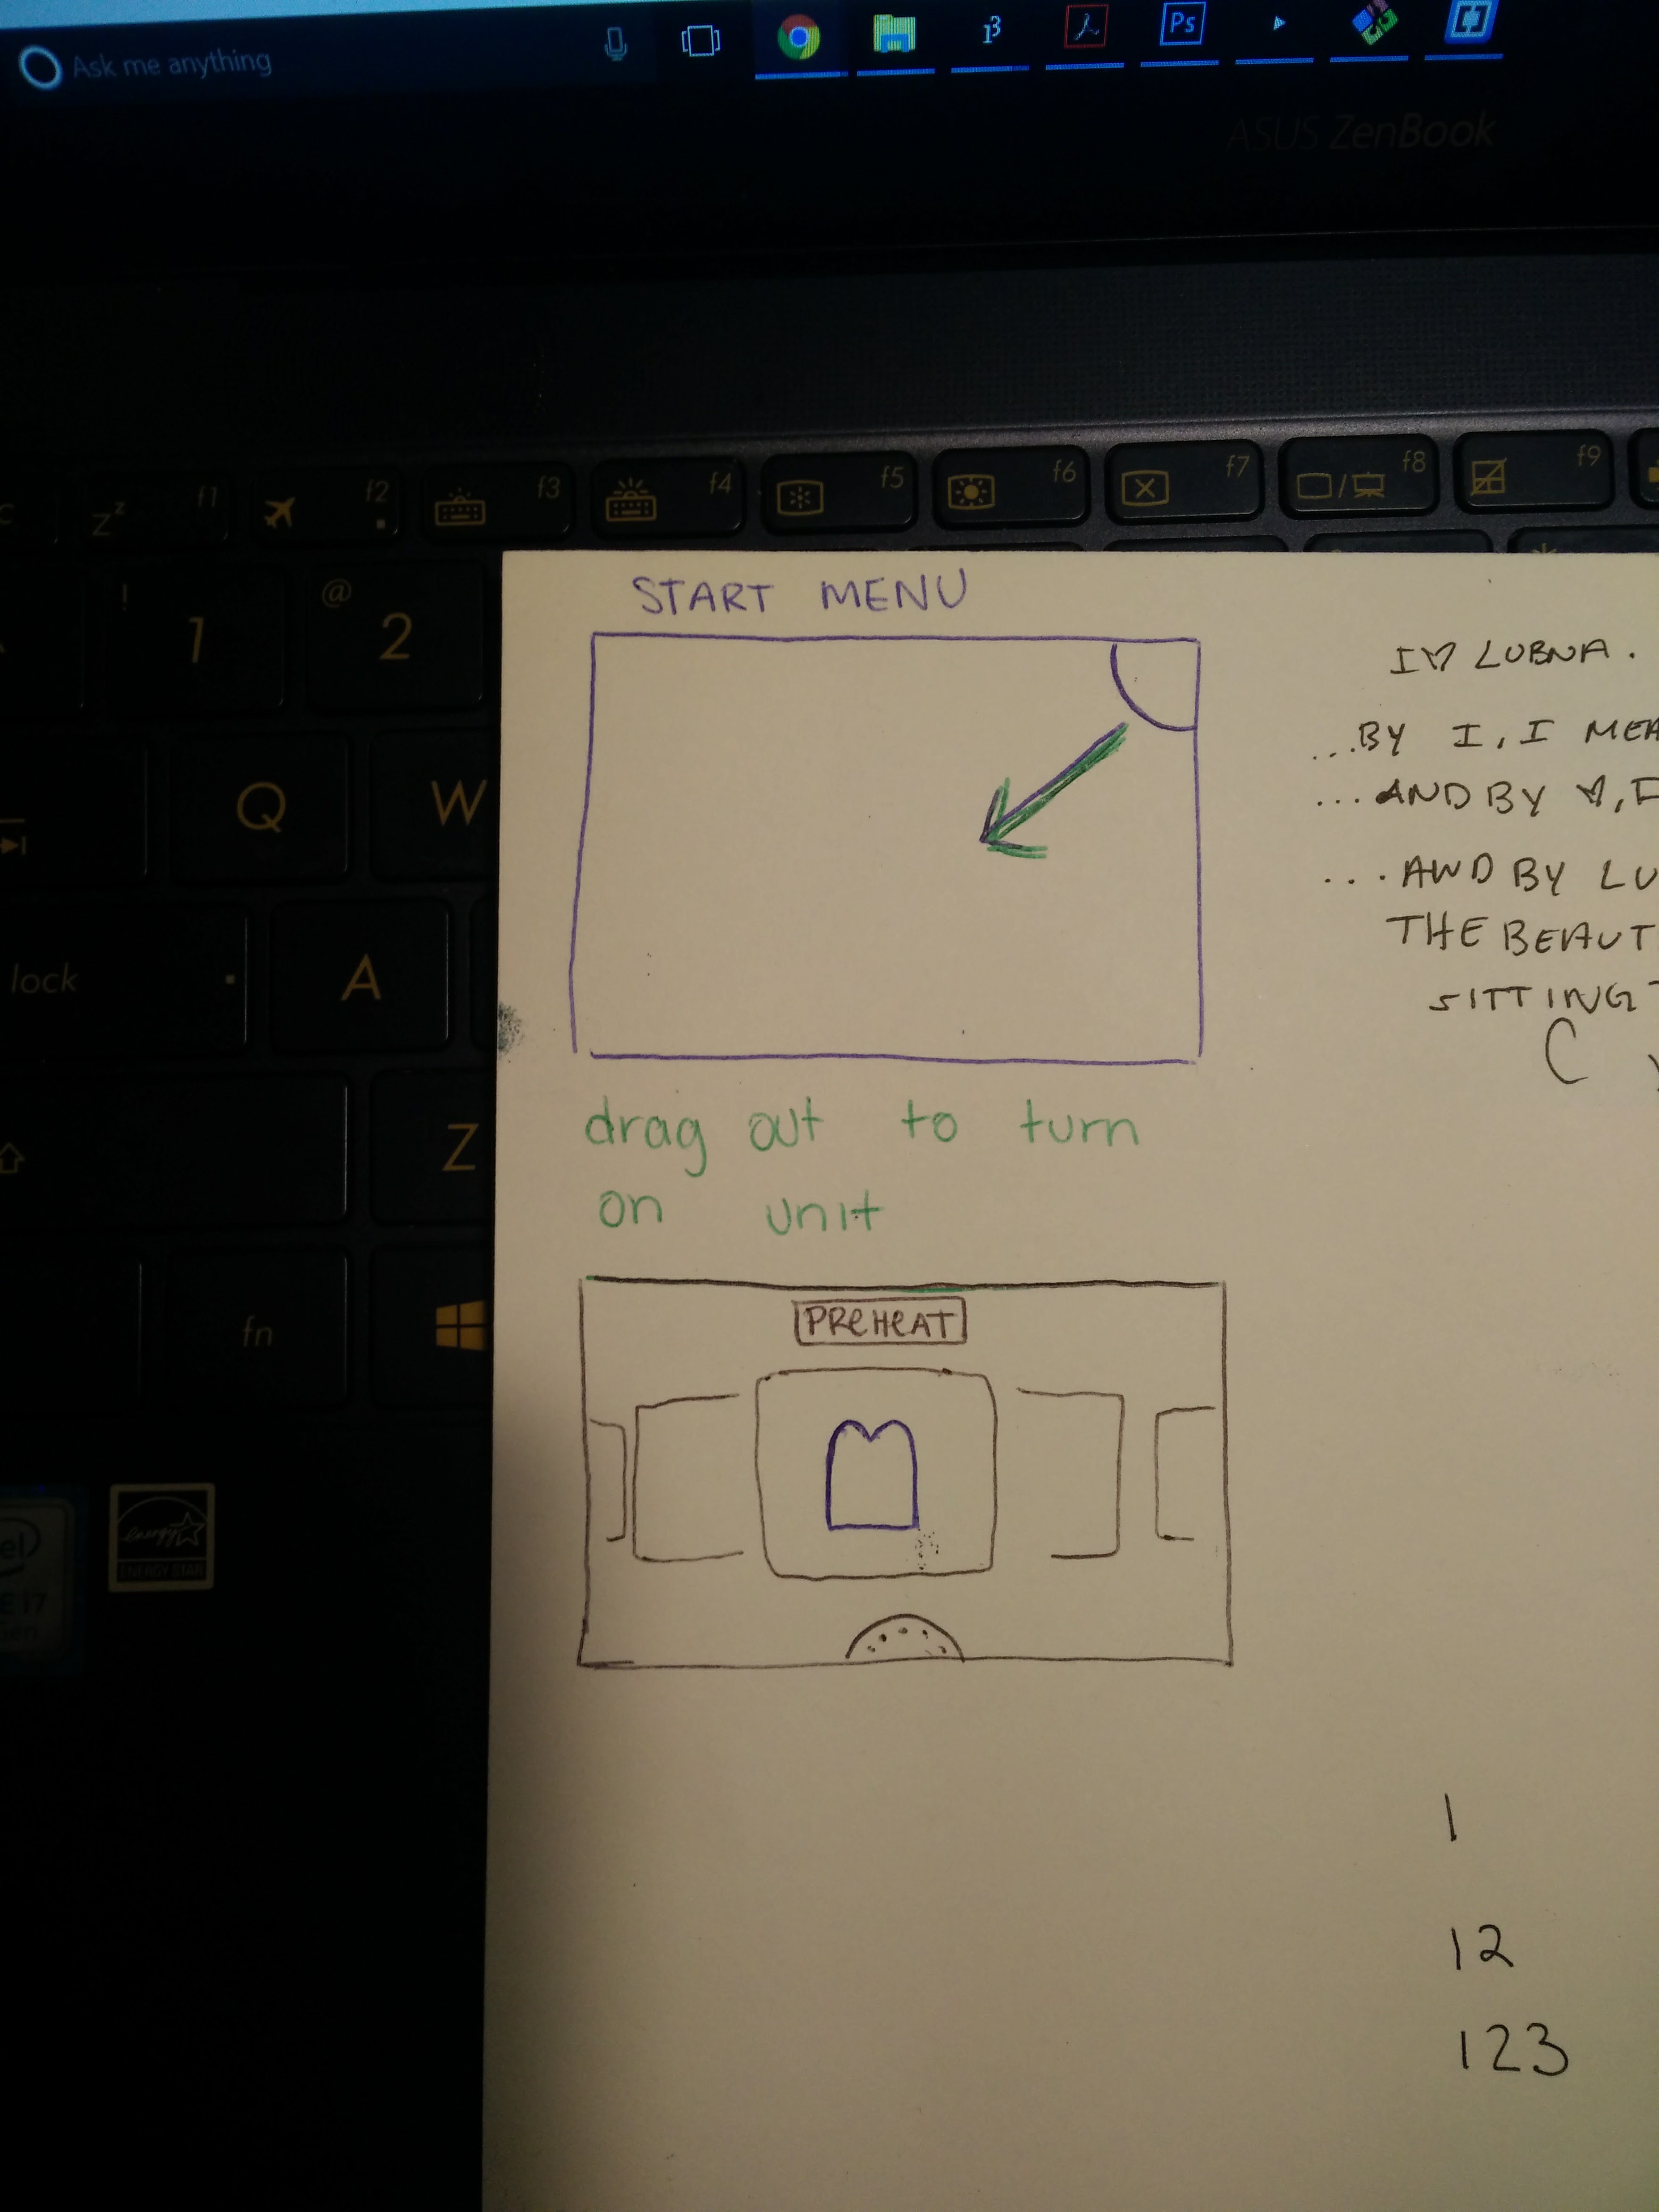 Ask me anything
Ps
ASUS ZenBook
f1 f2 f3 f4 f5 f6 f7 f8 f9
! 1 @ 2
Q W
lock A
Z
fn
energy
ENERGY STAR
START MENU
drag out to turn
on unit
PREHEAT
I♡ LUBNA.
...BY I, I
...AND BY ♡,
...AND BY
THE
SITTING
1
12
123